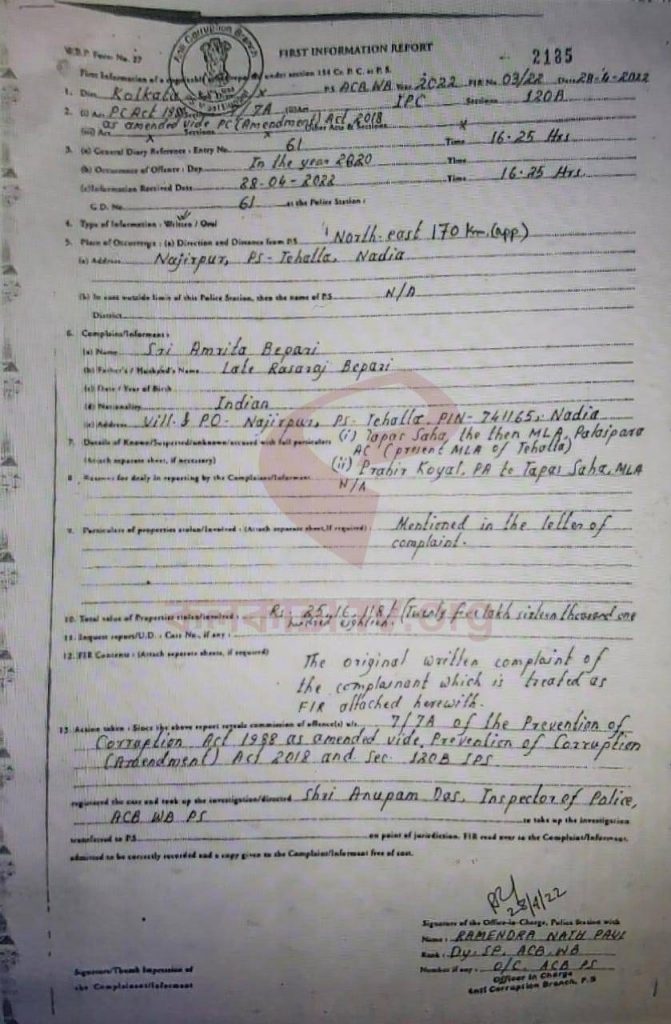 W.B.P Form No. 27
Anti Corruption Branch
FIRST INFORMATION REPORT
2135
First Information of a cognizable under section 154 Cr. P. C. at P. S.
1. Dist. Kolkata x P.S. ACB WB Year 2022 FIR No. 03/22 Date 28-4-2022
2. (i) Act PC Act 1988 7/7A (ii) Act IPC Sections 120B
as amended vide PC (Amendment) Act 2018
(iii) Act x Sections x Other Acts & Sections x
3. (a) General Diary Reference : Entry No. 61 Time 16.25 Hrs
(b) Occurrence of Offence : Day In the year 2020 Time
(c) Information Received Date 28-04-2022 Time 16.25 Hrs.
G.D. No. 61 at the Police Station :
4. Type of Information : Written / Oral
5. Place of Occurrence : (a) Direction and Distance from P.S. North-east 170 Km. (app)
(a) Address Najirpur, PS- Tehatta, Nadia
(b) In case outside limit of this Police Station, then the name of P.S. N/A
District
6. Complaint/Informant :
(a) Name Sri Amrita Bepari
(b) Father's / Husband's Name Late Rasaraj Bepari
(c) Date / Year of Birth
(d) Nationality Indian
(e) Address Vill & P.O- Najirpur, Ps- Tehatta, PIN- 741165, Nadia
7. Details of Known/Suspected/unknown/accused with full particulars (i) Tapas Saha, the then MLA, Palaipara
AC (present MLA of Tehatta)
(Attach separate sheet, if necessary) (ii) Prabir Koyal, PA to Tapas Saha, MLA
8. Reasons for dealy in reporting by the Complaint/Informant N/A
9. Particulars of properties stolen/Involved : (Attach separate sheet,if required) : Mentioned in the letter of
complaint.
.org
10. Total value of Properties stolen/involved : Rs 25,16,118/ (Twenty five lakh sixteen thousand one
hundred eighteen
11. Inquest report/U.D : Case No., if any :
12. FIR Contents : (Attach separate sheets, if required) The original written complaint of
the complainant which is treated as
FIR attached herewith.
13. Action taken : Since the above report reveals commission of offence(s) u/s. 7/7A of the Prevention of
Corruption Act 1988 as amended vide Prevention of Corruption
(Amendment) Act 2018 and Sec. 120B IPS
registered the case and took up the investigation/directed Shri Anupam Das, Inspector of Police,
ACB WB PS to take up the investigation
transferred to P.S. on point of jurisdiction. FIR read over to the Complaint/Informant,
admitted to be correctly recorded and a copy given to the Complaint/Informant free of cost.
28/4/22
Signature of the Officer-in-Charge, Police Station with
Name : RAMENDRA NATH PAUL
Rank : Dy. SP, ACB, WB
Number if any : O/C. ACB PS
Officer in Charge
Anti Corruption Branch, P.S
Signature/Thumb Impression of
the Complainant/Informant